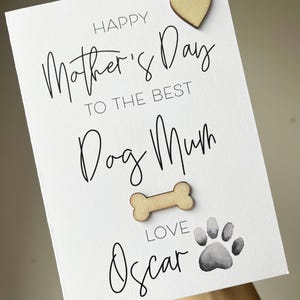 HAPPY
Mother's Day
TO THE BEST
Dog Mum
LOVE
Oscar